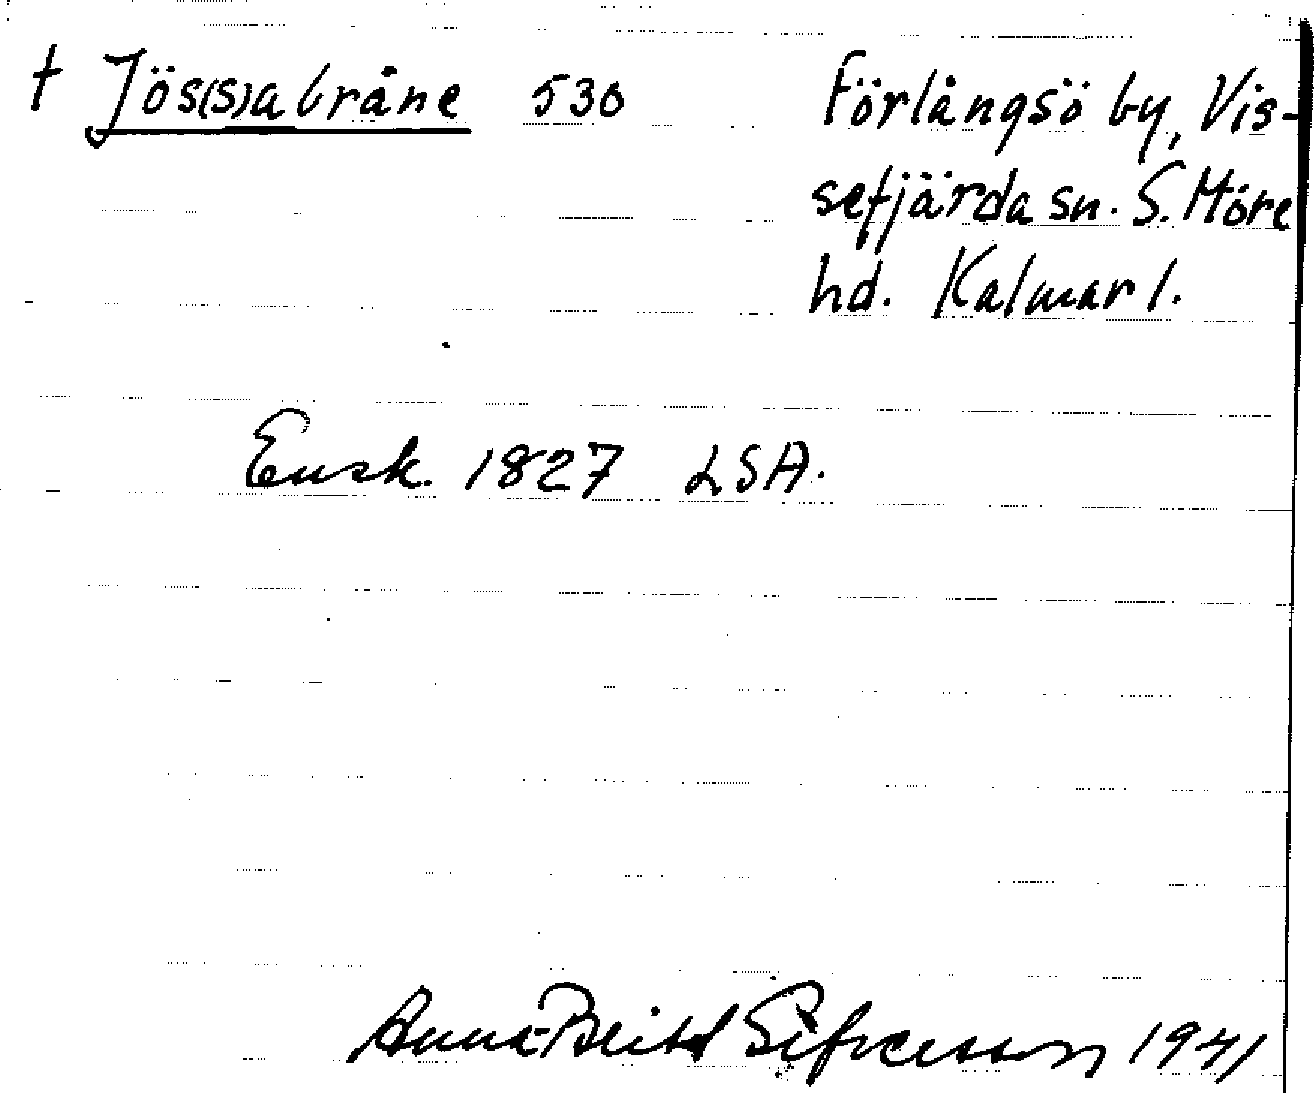 † Jös(s)abråne 536 Förlångsö by, Vis-
sefjärda sn. S. Möre
hd. Kalmar l.
Ensk. 1827 LSA.
Anna-Britt 1941